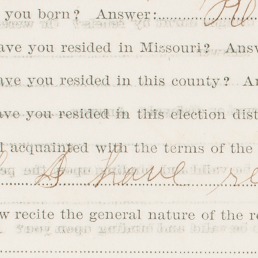 you born? Answer:
ave you resided in Missouri? Answ
ave you resided in this county? An
ave you resided in this election dist
l acquainted with the terms of the
I have re
w recite the general nature of the re